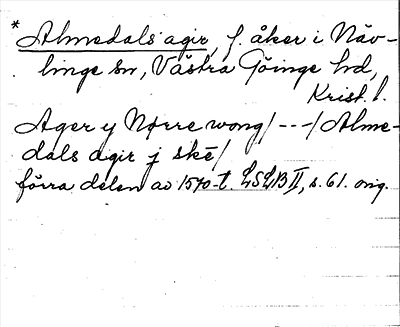 * Almedals agir, f. åker i Näv-
linge sn, Västra Göinge hd,
Krist. l.
Ager y Nørre wong/ --- / Alme-
dals agir j skē/
förra delen av 1570-t. LSLB II, s. 61. orig.